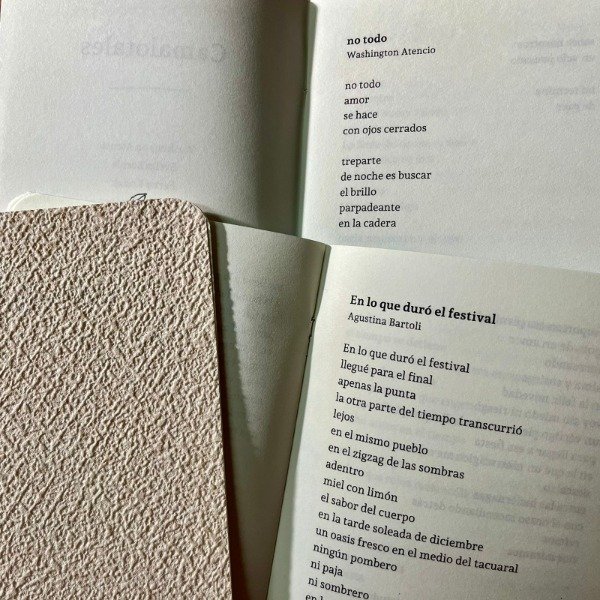 no todo
Washington Atencio
no todo
amor
se hace
con ojos cerrados
treparte
de noche es buscar
el brillo
parpadeante
en la cadera
En lo que duró el festival
Agustina Bartoli
En lo que duró el festival
llegué para el final
apenas la punta
la otra parte del tiempo transcurrió
lejos
en el mismo pueblo
en el zigzag de las sombras
adentro
miel con limón
el sabor del cuerpo
en la tarde soleada de diciembre
un oasis fresco en el medio del tacuaral
ningún pombero
ni paja
ni sombrero